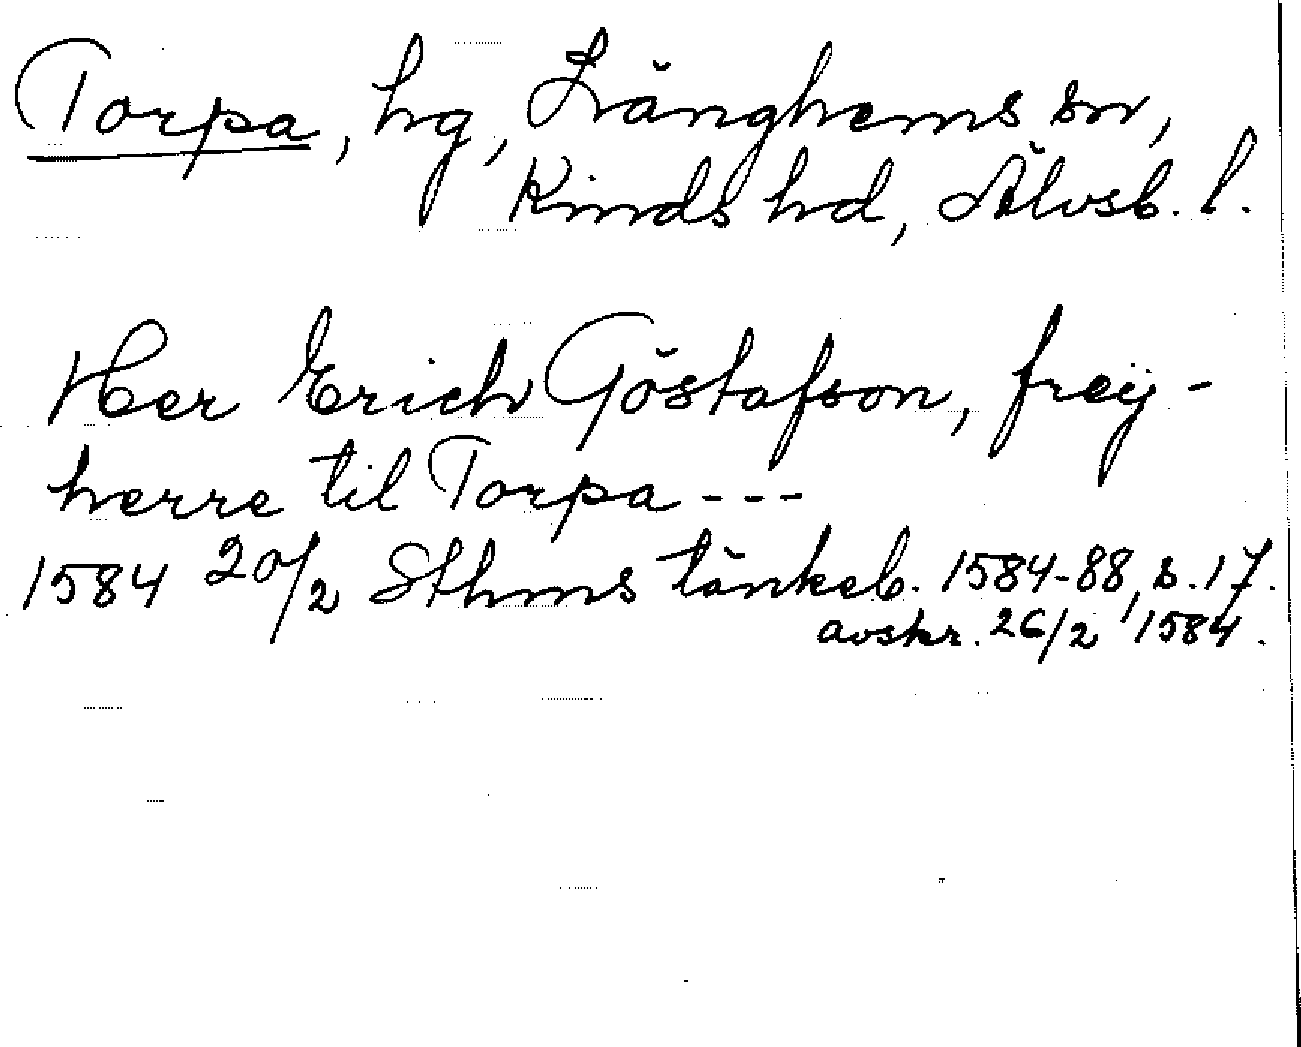 Torpa, hg, Länghems sn,
Kinds hd, Älvsb. l.
Her Erich Göstafson, freij-
herre til Torpa ---
1584 20/2 Sthms tänkeb. 1584-88, s. 17.
avskr. 26/2 1584.